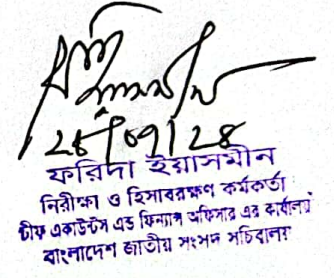 ২৪/০৭/২৪
ফরিদা ইয়াসমীন
নিরীক্ষা ও হিসাবরক্ষণ কর্মকর্তা
চীফ একাউন্টস এন্ড ফিন্যান্স অফিসার এর কার্যালয়
বাংলাদেশ জাতীয় সংসদ সচিবালয়